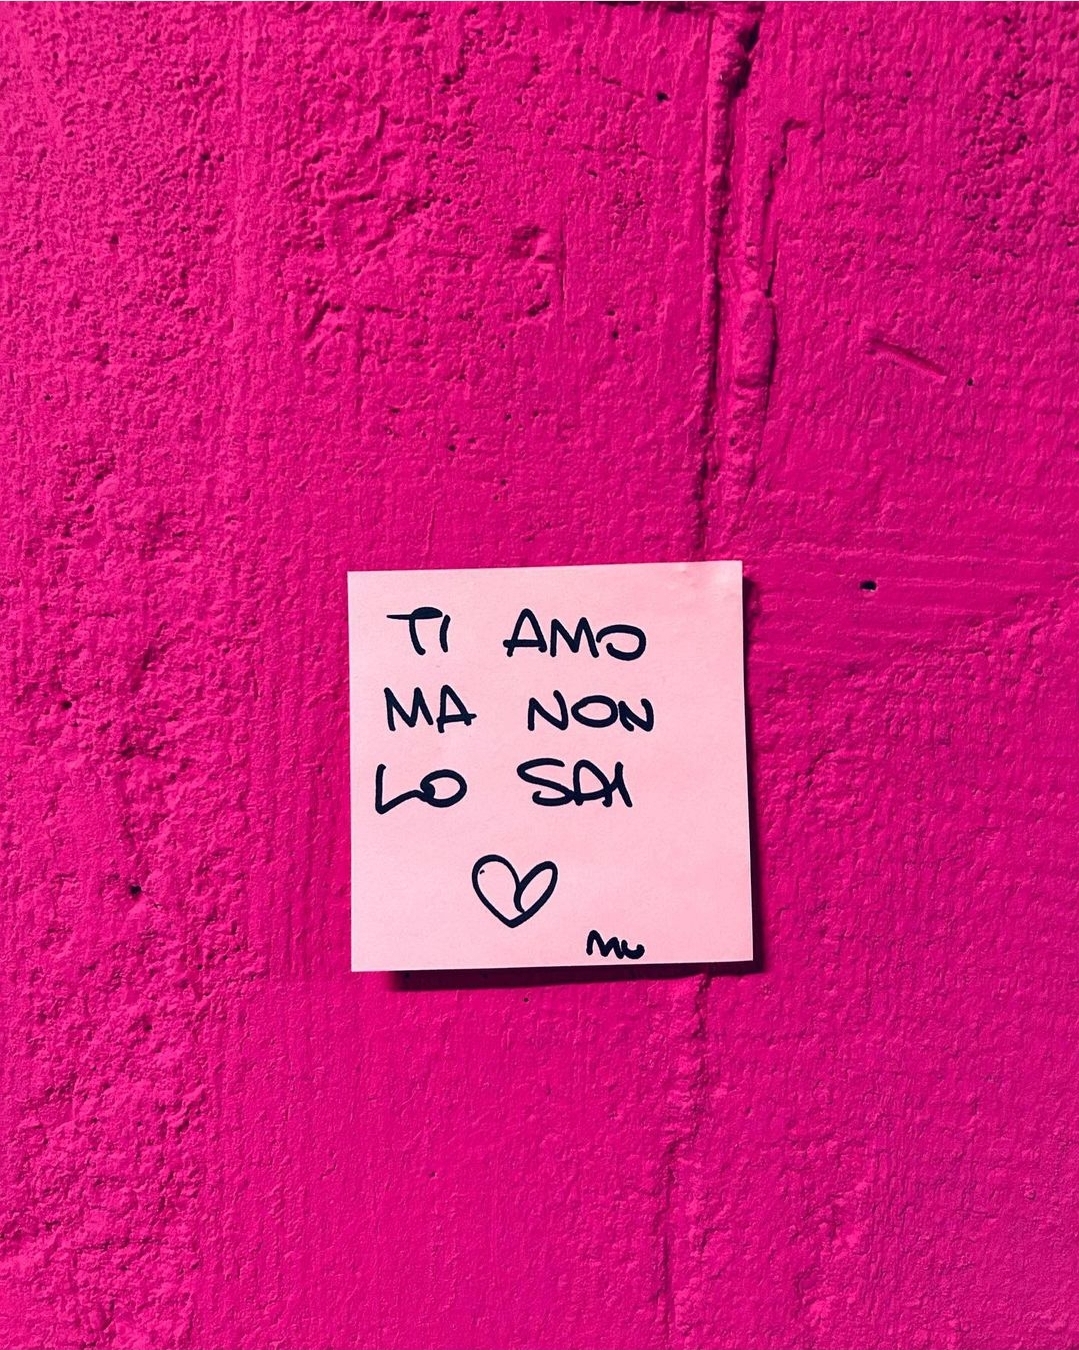 TI AMO
MA NON
LO SAI
MU